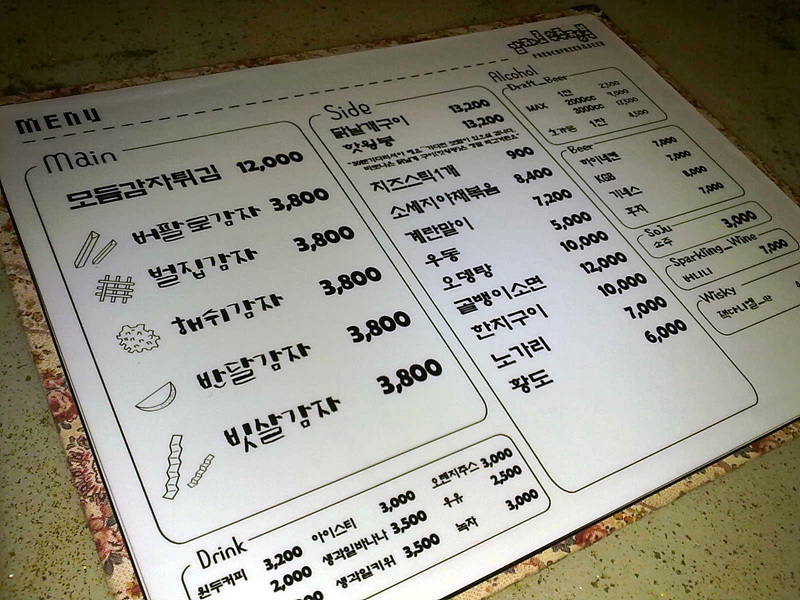 MENU
Main
모듬감자튀김 12,000
버팔로감자 3,800
벌집감자 3,800
해쉬감자 3,800
반달감자 3,800
빗살감자 3,800
Side
닭날개구이 13,200
핫윙봉 13,200
치즈스틱1개 900
소세지야채볶음 8,400
계란말이 7,200
우동 5,000
오뎅탕 10,000
골뱅이소면 12,000
한치구이 10,000
노가리 7,000
황도 6,000
Drink
원두커피 3,200
2,000
아이스티 3,000
생과일바나나 3,500
생과일키위 3,500
오렌지주스 3,000
우유 2,500
녹차 3,000
Alcohol
Draft_Beer
MAX
2000cc
3000cc
Beer
하이네켄 7,000
KGB 7,000
기네스 8,000
7,000
Soju
소주 3,000
Sparkling_Wine
버니니 7,000
Wisky